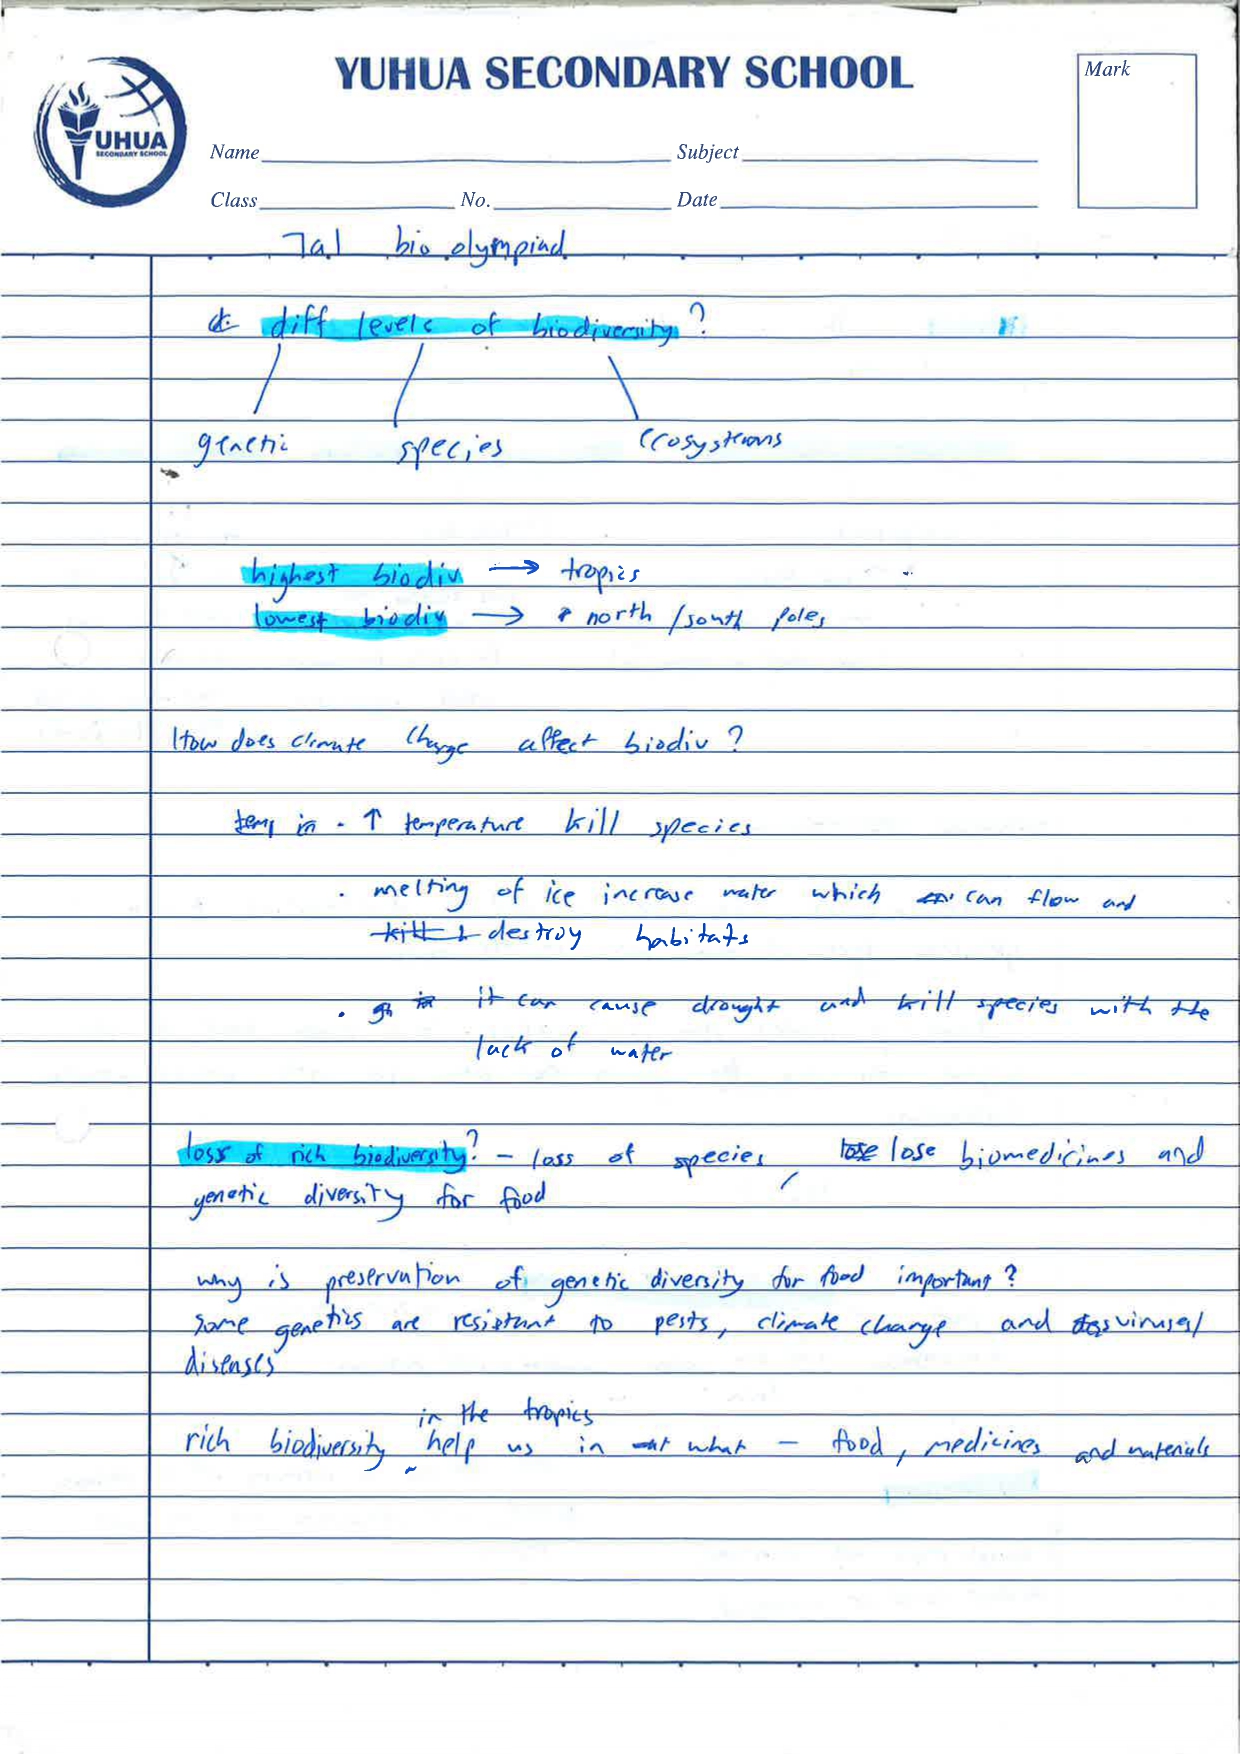 YUHUA SECONDARY SCHOOL
Mark
YUHUA
SECONDARY SCHOOL
Name Subject
Class No. Date
bio olympiad
diff levels of biodiversity?
genetic species ecosystems
highest biodiv → tropics
lowest biodiv → north/south poles
How does climate change affect biodiv?
temp in · ↑ temperature kill species
· melting of ice increase water which can flow and
kill & destroy habitats
· it can cause drought and kill species with the
lack of water
loss of rich biodiversity? - loss of species, lose lose biomedicines and
genetic diversity for food
why is preservation of genetic diversity for food important?
some genetics are resistant to pests, climate change and viruses/
diseases
in the tropics
rich biodiversity help us in what - food, medicines and materials